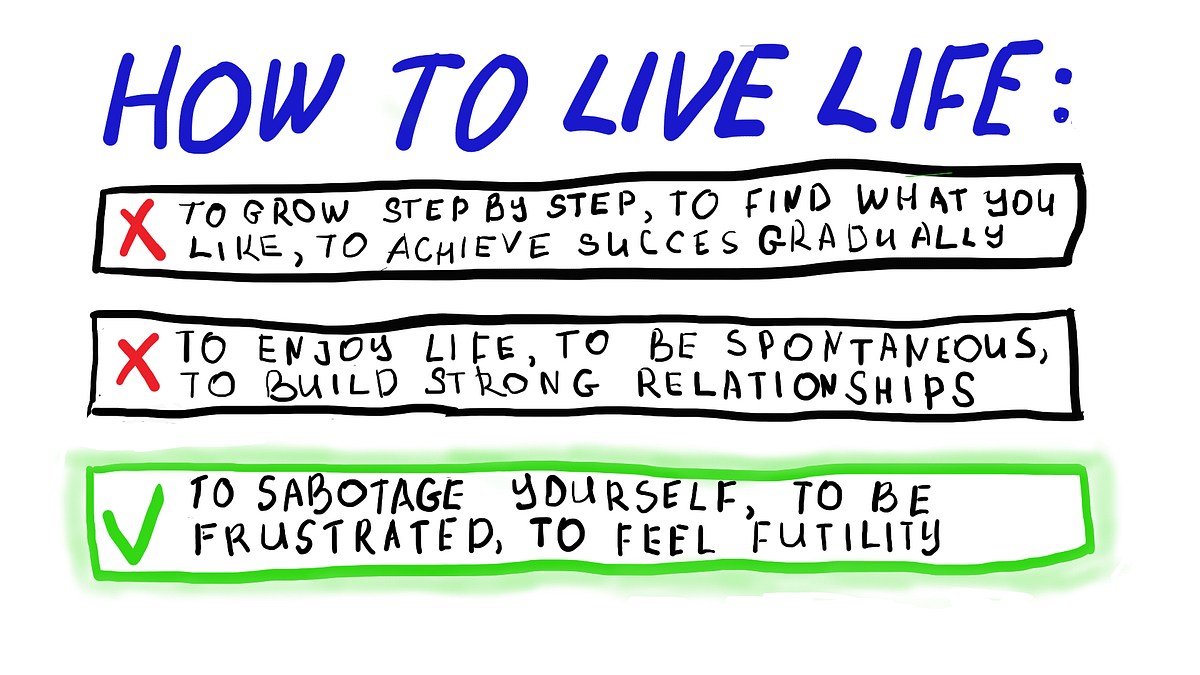 HOW TO LIVE LIFE:
TO GROW STEP BY STEP, TO FIND WHAT YOU
LIKE, TO ACHIEVE SUCCES GRADUALLY
TO ENJOY LIFE, TO BE SPONTANEOUS,
TO BUILD STRONG RELATIONSHIPS
TO SABOTAGE YOURSELF, TO BE
FRUSTRATED, TO FEEL FUTILITY